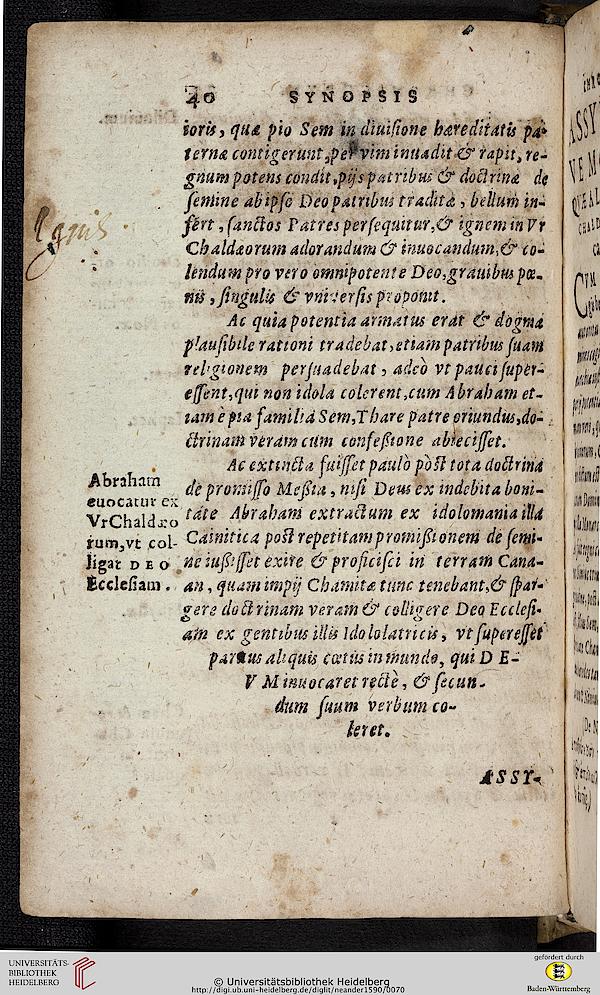 40 SYNOPSIS
ioris, quæ pio Sem in diuisione hæreditatis pa-
ternæ contigerunt, per vim inuadit & rapit, re-
gnum potens condit, pijs patribus & doctrinæ de
semine ab ipso Deo patribus traditæ, bellum in-
fert, sanctos Patres persequitur, & ignem in Vr
Chaldæorum adorandum & inuocandum, & co-
lendum pro vero omnipotente Deo, grauibus pœ-
nis, singulis & vniuersis proponit.
Ignis.
Ac quia potentia armatus erat & dogma
plausibile rationi tradebat, etiam patribus suam
religionem persuadebat, adeò vt pauci super-
essent, qui non idola colerent, cum Abraham et-
iam è pia familia Sem, Thare patre oriundus, do-
ctrinam veram cum confeßione abiecisset.
Ac extincta fuisset paulò pòst tota doctrina
de promisso Meßia, nisi Deus ex indebita boni-
tate Abraham extractum ex idolomania illa
Cainitica post repetitam promißionem de semi-
ne iußisset exire & proficisci in terram Cana-
an, quam impij Chamitæ tunc tenebant, & spar-
gere doctrinam veram & colligere Deo Ecclesi-
am ex gentibus illis Idololatricis, vt superesset
paruus aliquis cœtus in mundo, qui D E-
V M inuocaret rectè, & secun-
dum suum verbum co-
leret.
Abraham
euocatur ex
Vr Chaldæo
rum, vt col-
ligat DEO
Ecclesiam.
ASSY-
UNIVERSITÄTS-
BIBLIOTHEK
HEIDELBERG
© Universitätsbibliothek Heidelberg
http://digi.ub.uni-heidelberg.de/diglit/neander1590/0070
gefördert durch
Baden-Württemberg